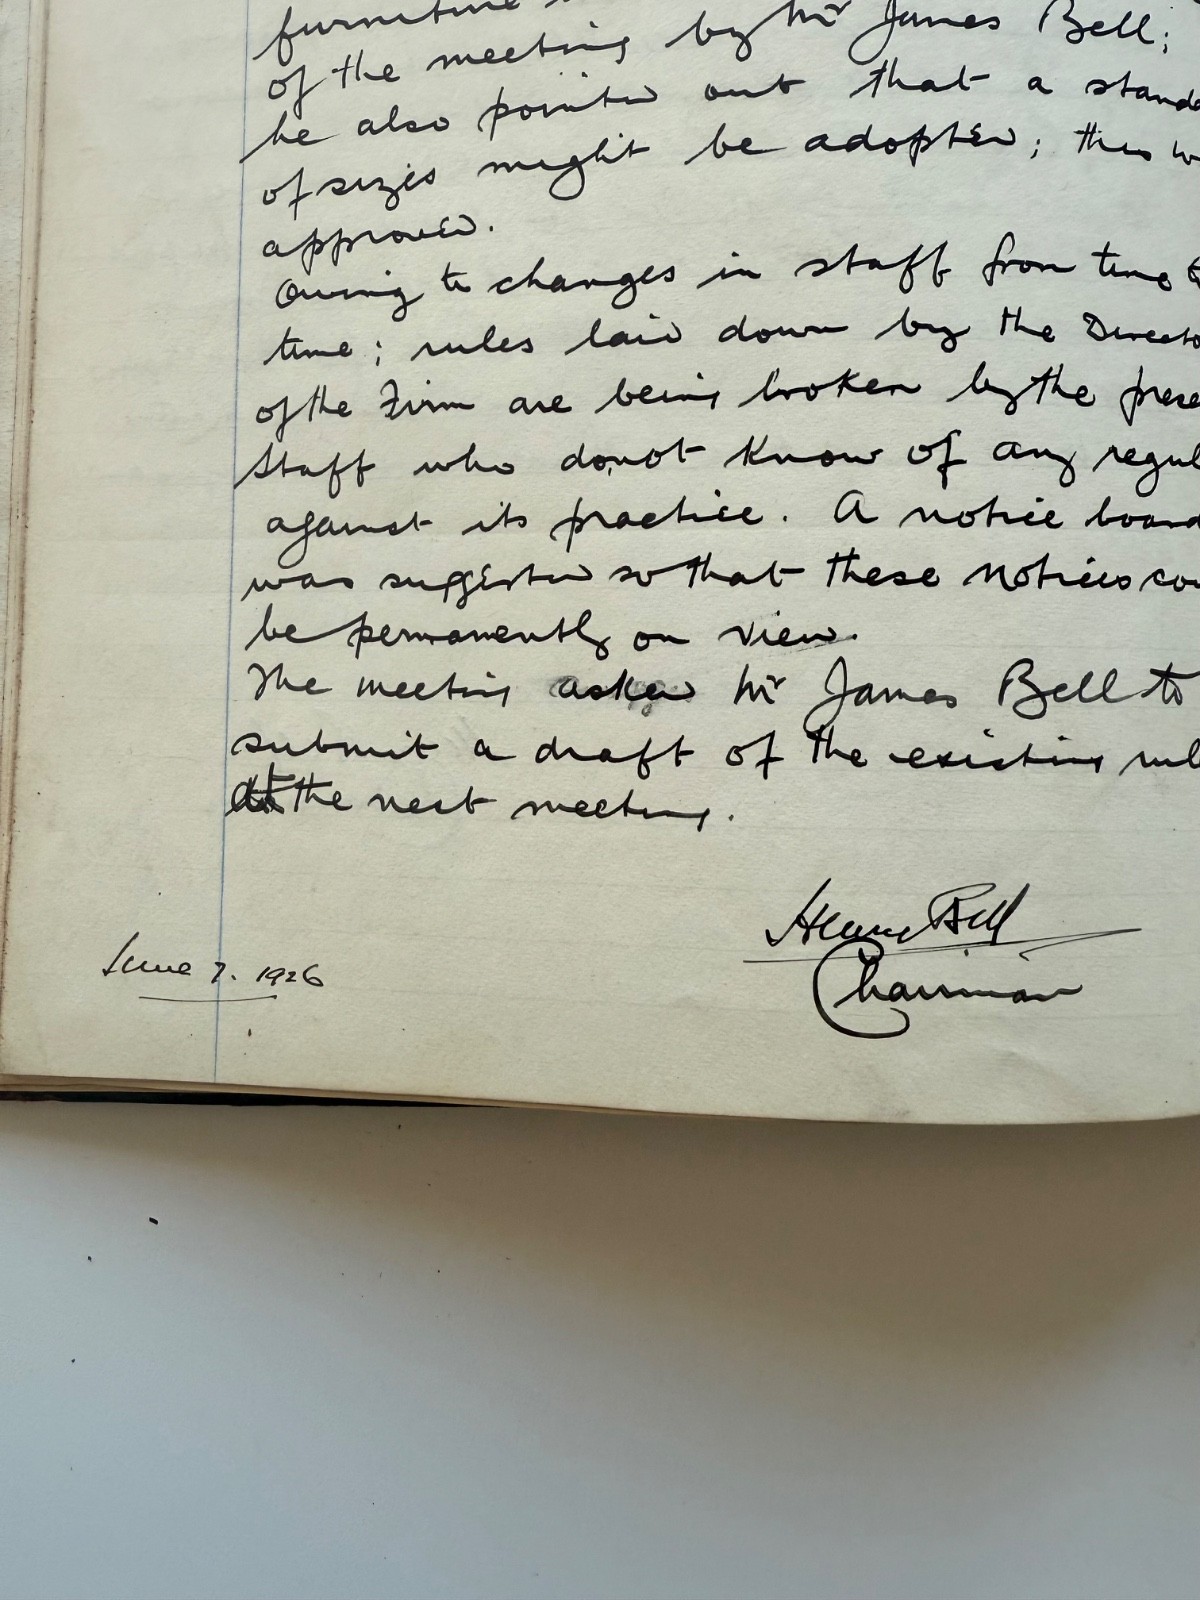 furniture
of the meeting by Mr James Bell;
he also pointed out that a standa
of sizes might be adopted; this w
approved.
Owing to changes in staff from time t
time; rules laid down by the Directo
of the Firm are being broken by the prese
staff who do not know of any regul
against its practice. A notice board
was suggested so that these notices cou
be permanently on view.
The meeting asked Mr James Bell to
submit a draft of the existing rul
at the next meeting.
Henry Bell
Chairman
June 7. 1926